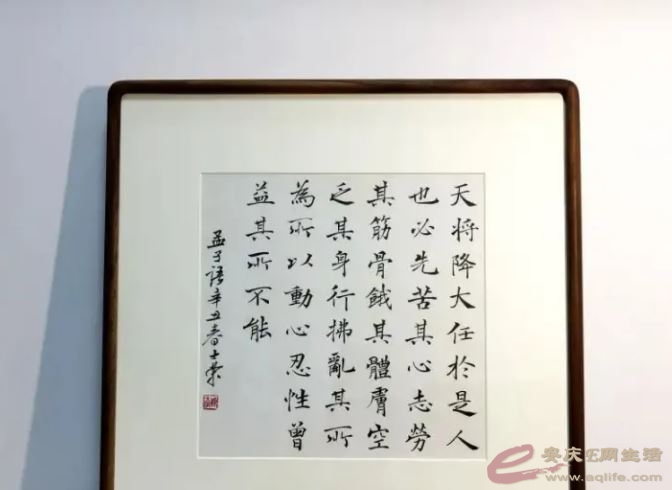 天将降大任於是人
也必先苦其心志勞
其筋骨餓其體膚空
乏其身行拂亂其所
為所以動心忍性曾
益其所不能
孟子語辛丑春士
安庆E网生活
www.aqlife.com